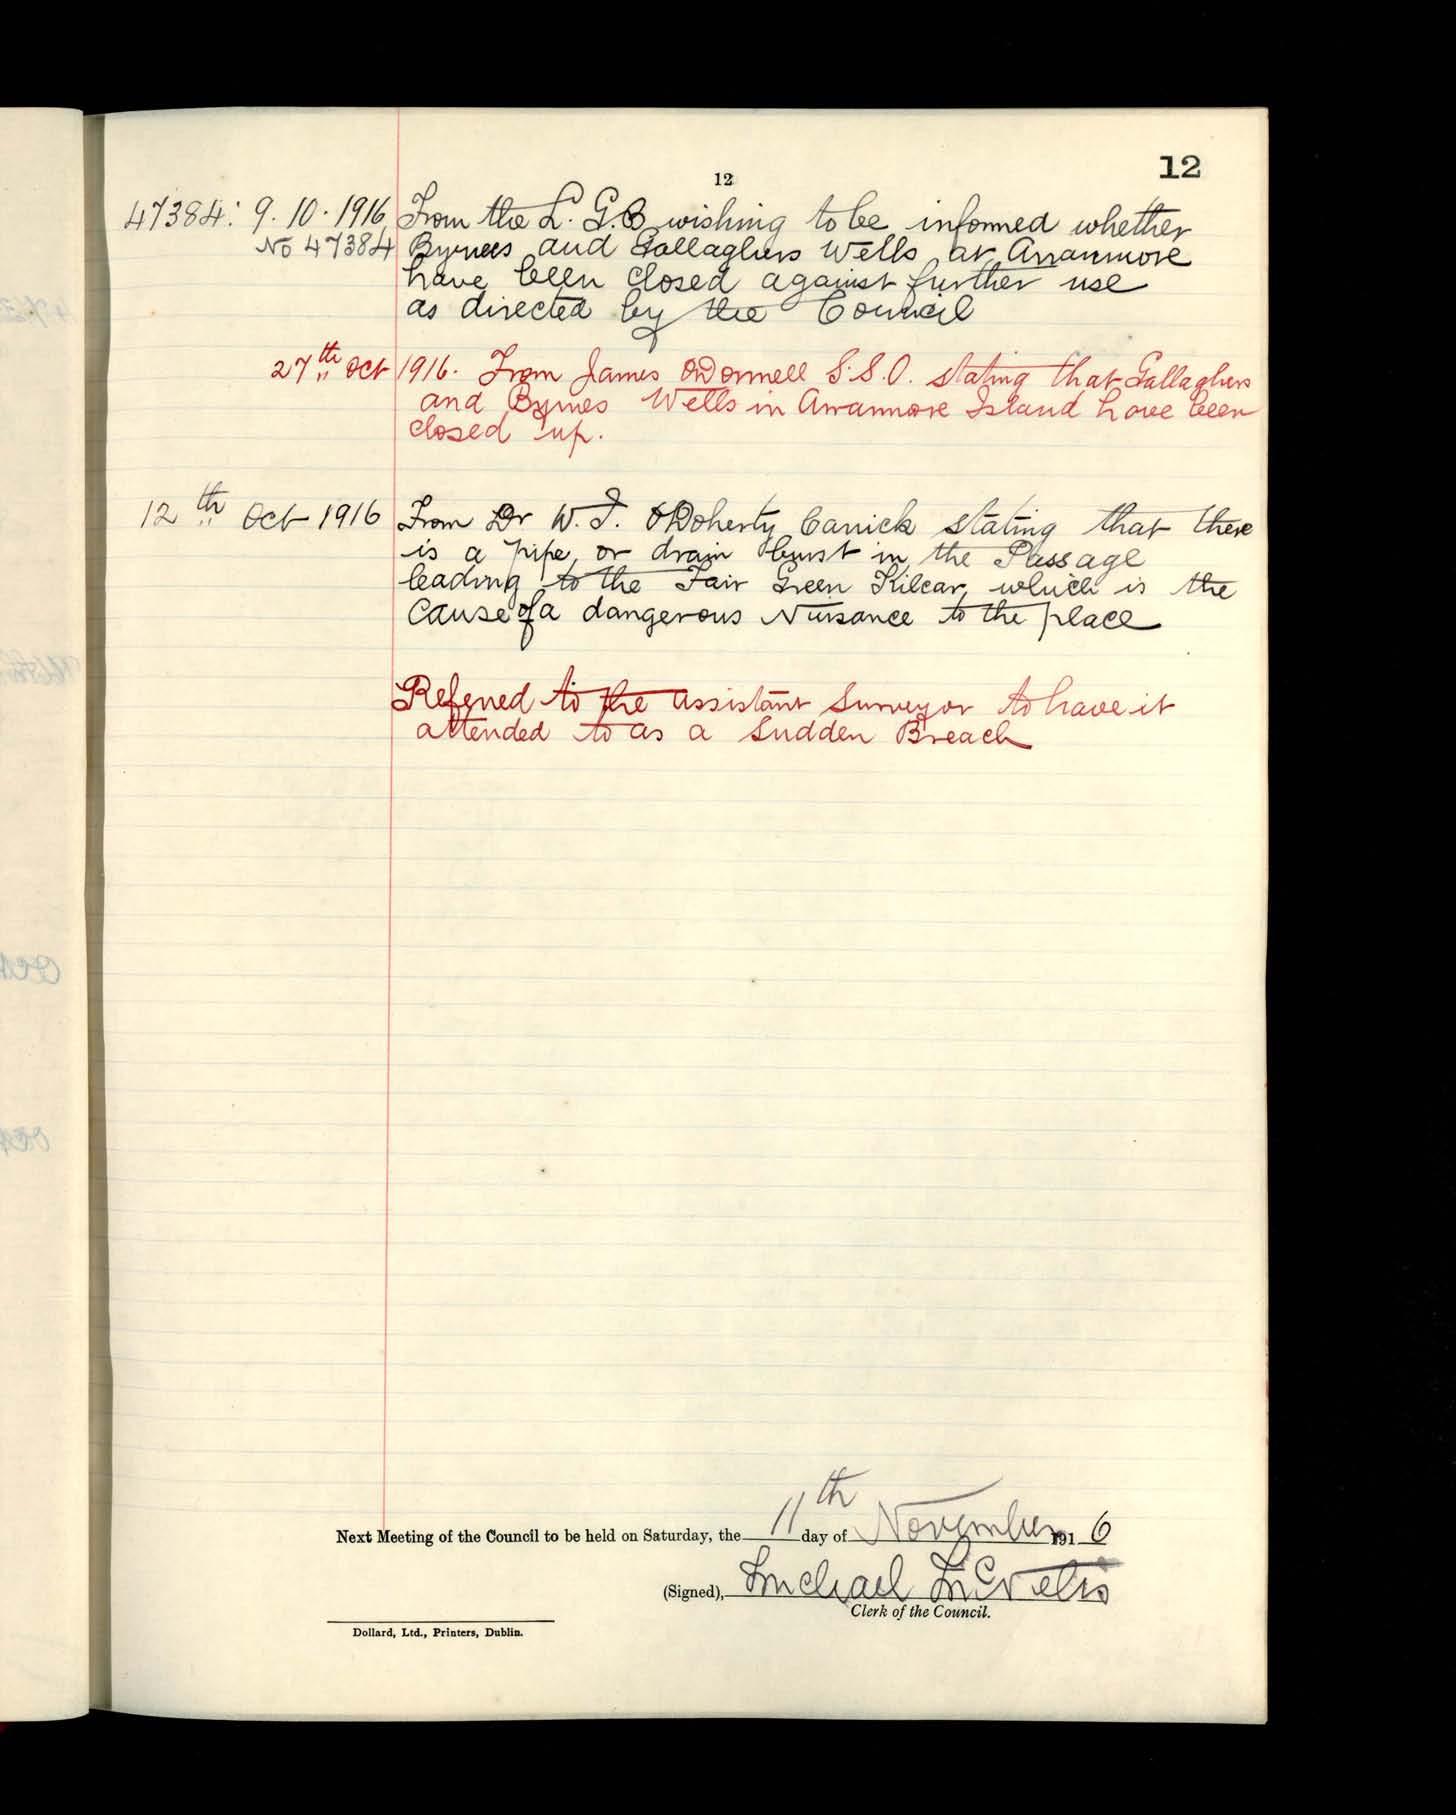 12
12
47384: 9.10.1916 From the L.G.B wishing to be informed whether
No 47384 Byrnes and Gallaghers Wells at Arranmore
have been closed against further use
as directed by the Council
27th Oct 1916. From James O'Donnell S.S.O. stating that Gallaghers
and Byrnes Wells in Arranmore Island have been
closed up.
12th Oct 1916 From Dr W. J. O'Doherty Carrick stating that there
is a pipe, or drain burst in the Passage
leading to the Fair Green Kilcar, which is the
cause of a dangerous Nuisance to the place
Referred to the assistant Surveyor to have it
attended to as a Sudden Breach
Next Meeting of the Council to be held on Saturday, the 11th day of November 1916
(Signed), Michael McNelis
Clerk of the Council.
Dollard, Ltd., Printers, Dublin.